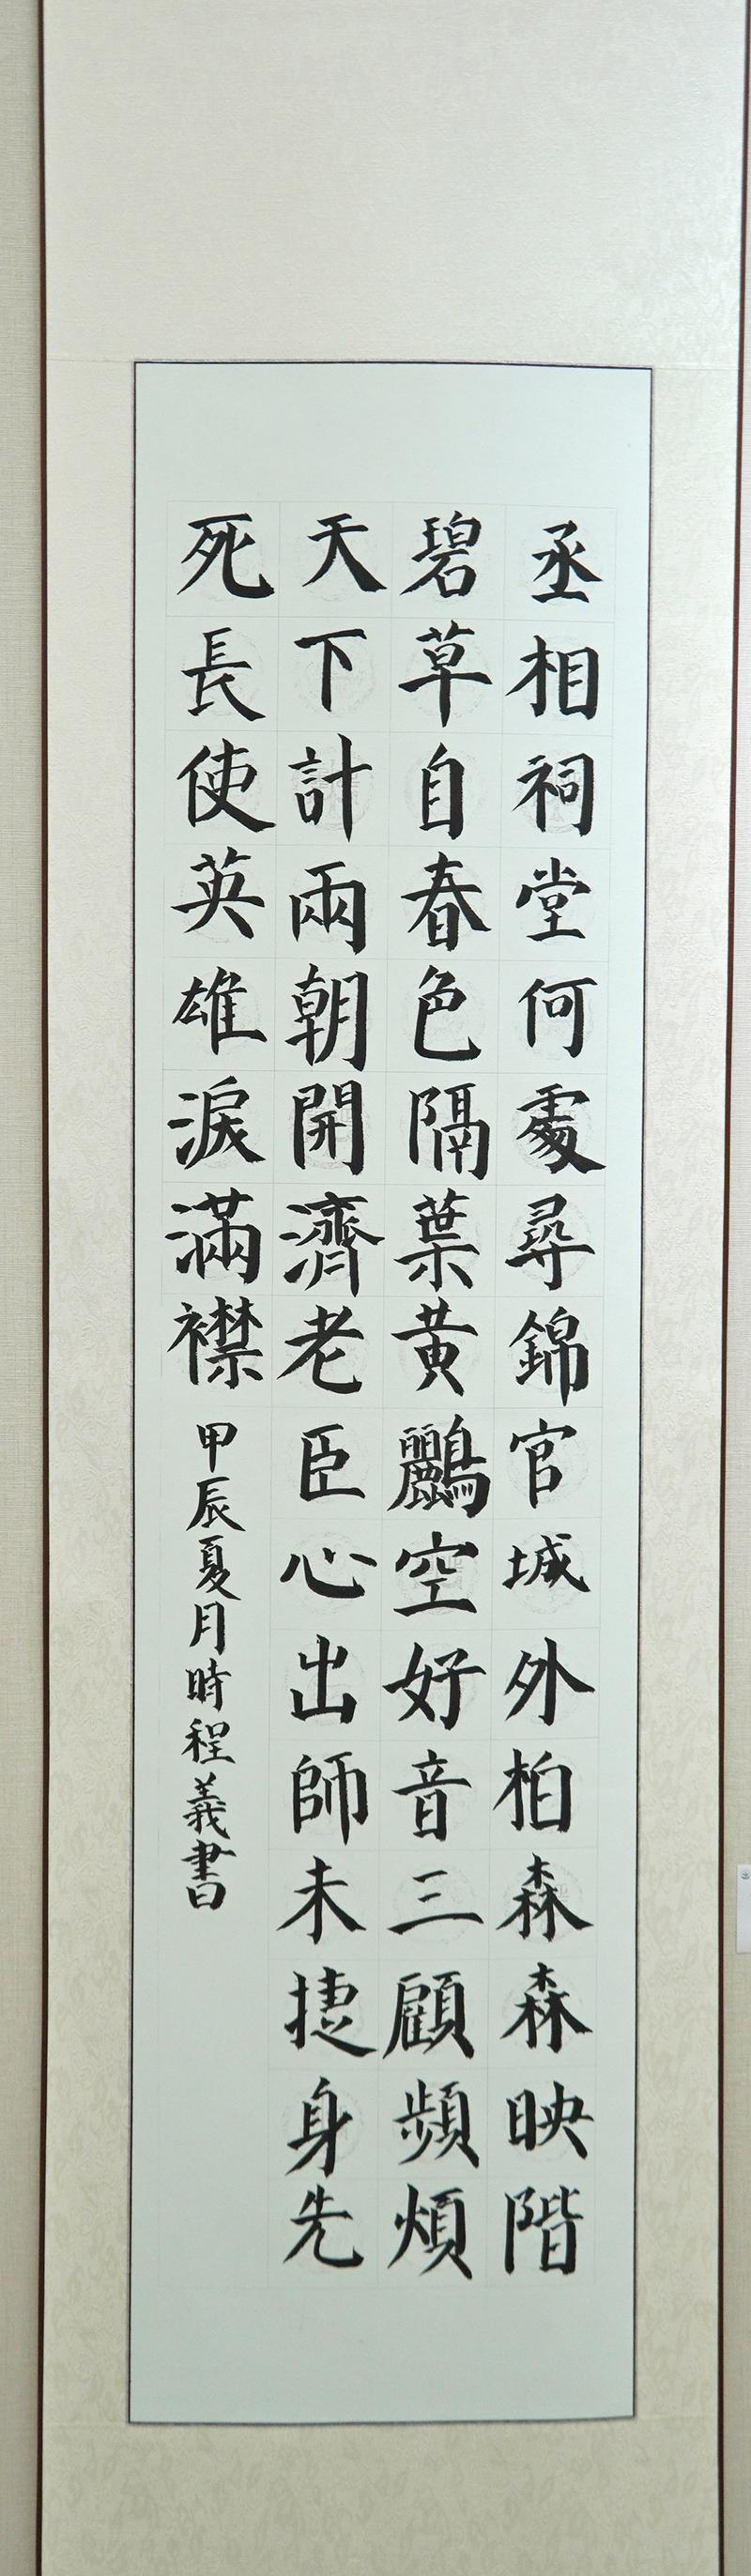 丞相祠堂何處尋錦官城外柏森森映階
碧草自春色隔葉黃鸝空好音三顧頻煩
天下計兩朝開濟老臣心出師未捷身先
死長使英雄淚滿襟
甲辰夏月時程義書